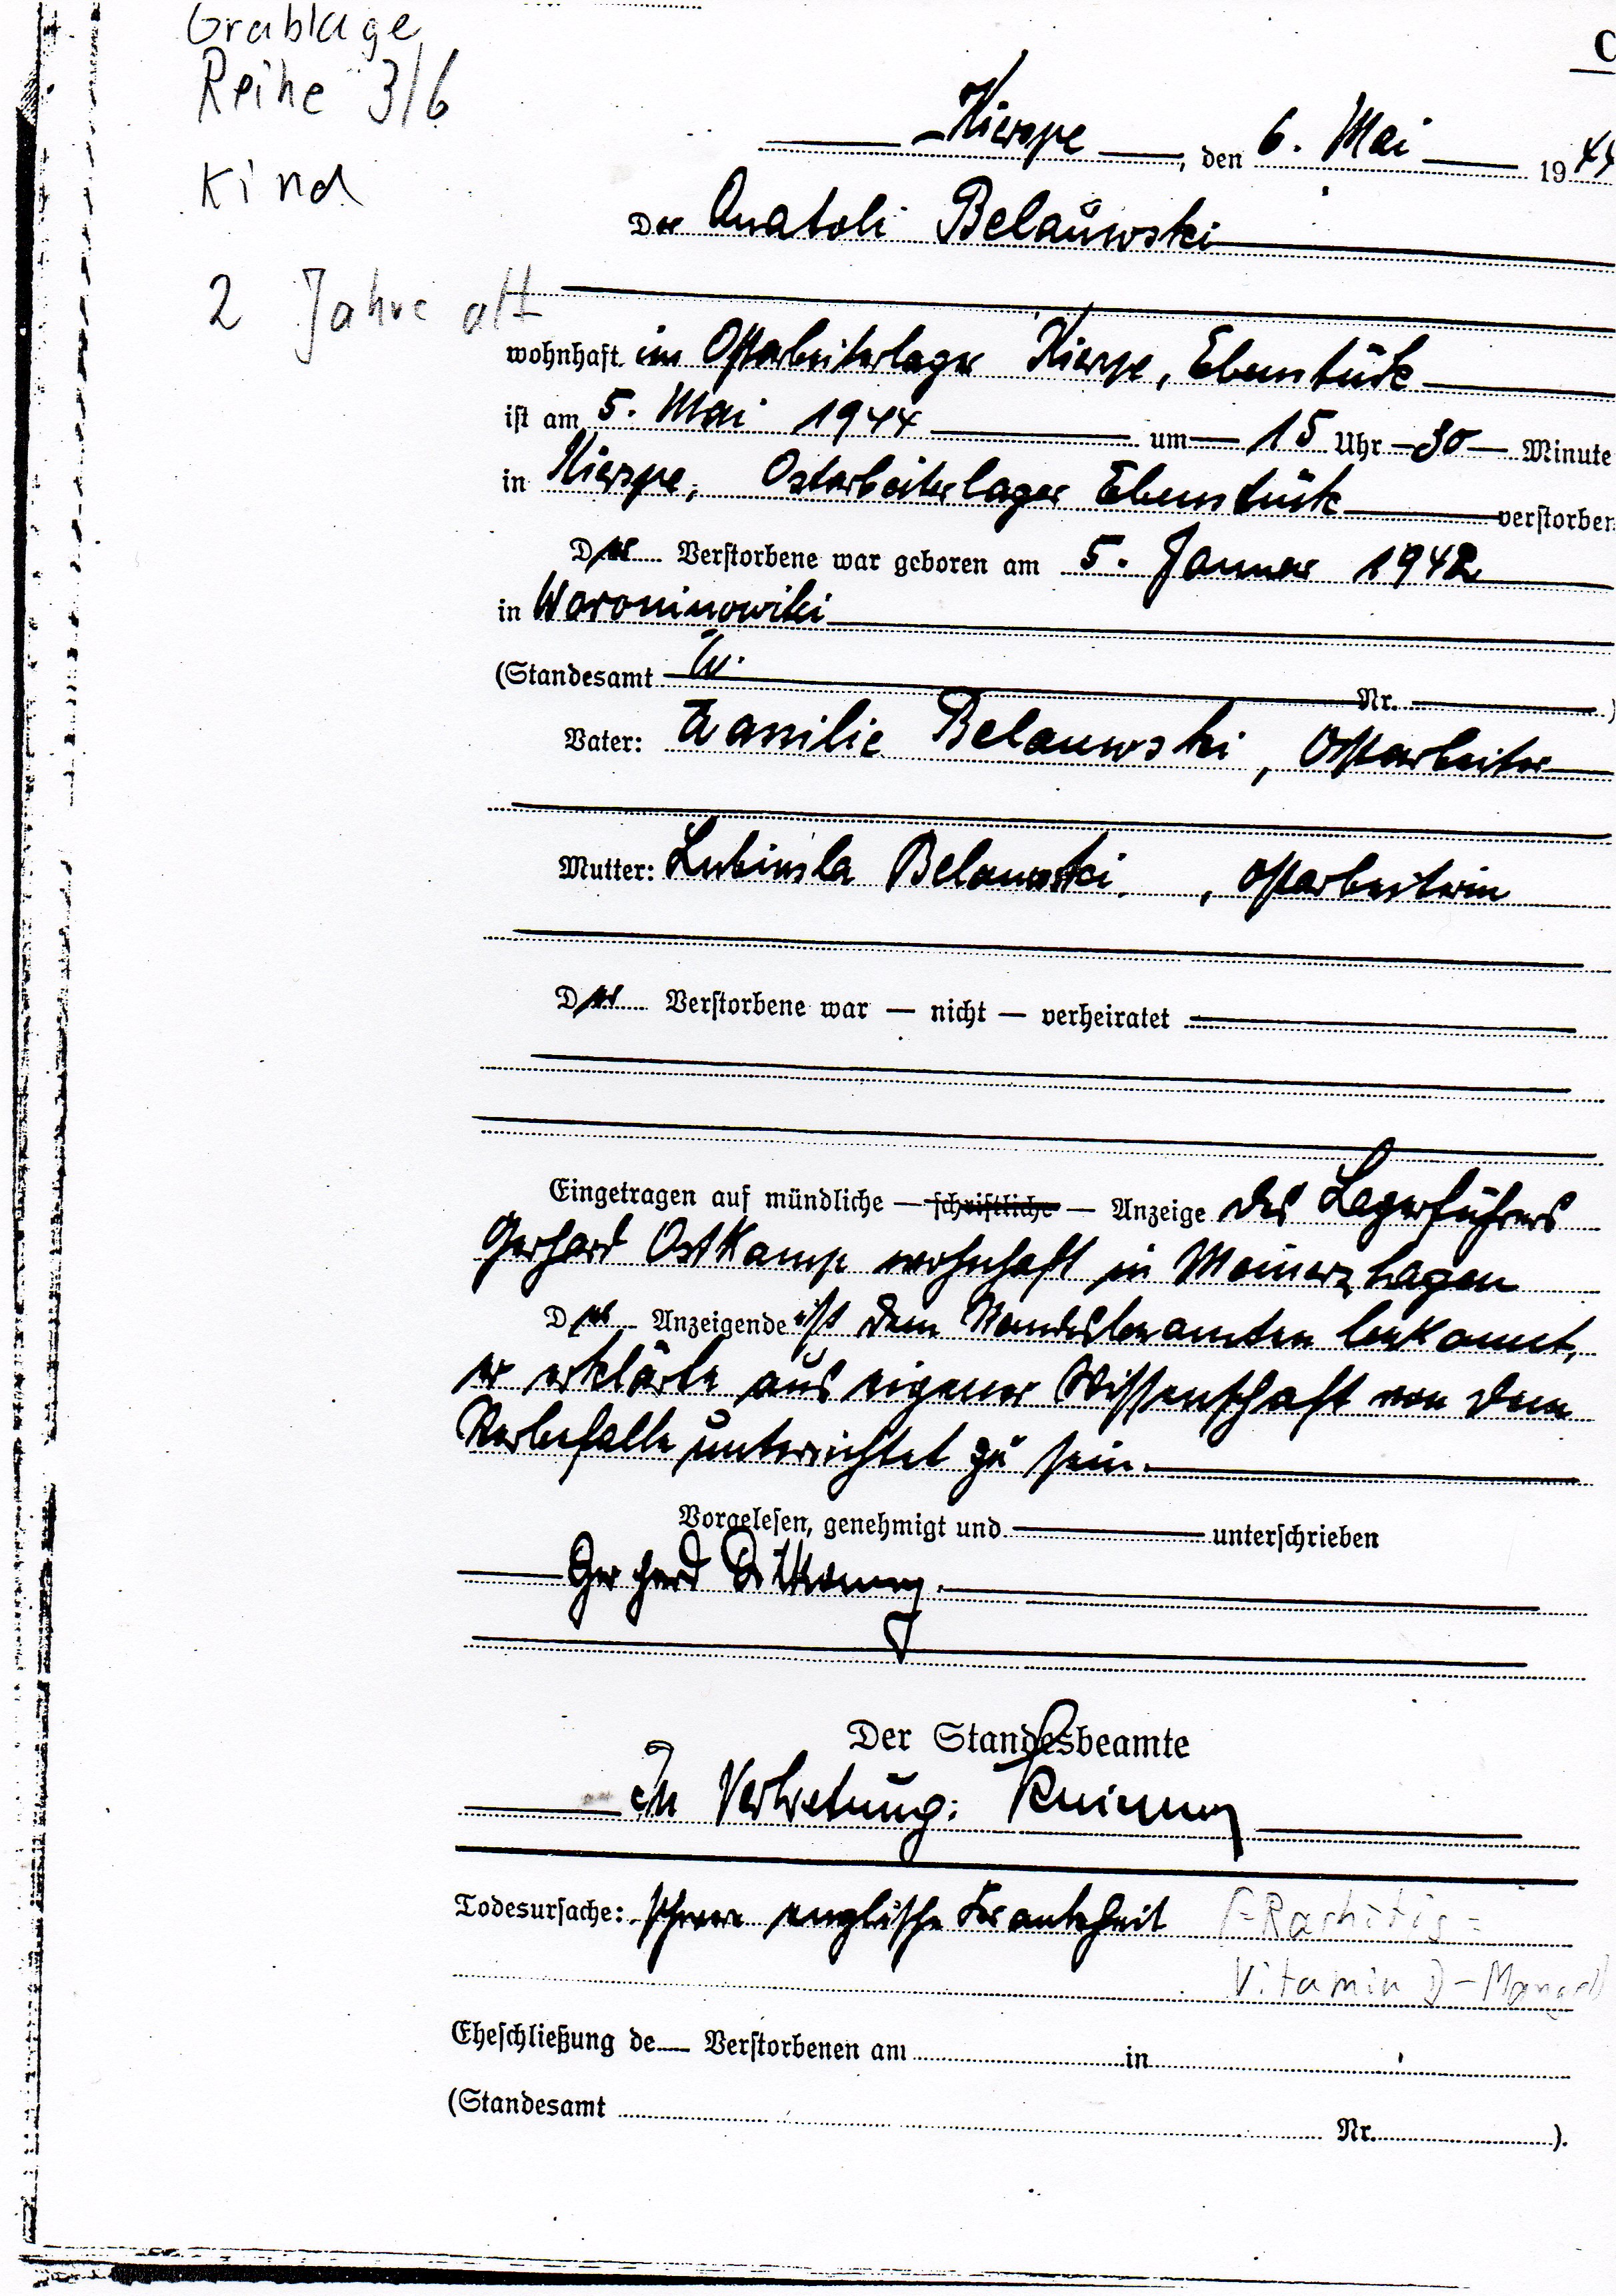 Grablage
Reihe 3/6
Kind
2 Jahre alt
C
Kierspe, den 6. Mai 1944
Der Anatoli Belauwski
wohnhaft im Ostarbeiterlager Kierspe, Ebenstück
ist am 5. Mai 1944 um 15 Uhr 30 Minute
in Kierspe, Ostarbeiterlager Ebenstück verstorben
Der Verstorbene war geboren am 5. Januar 1942
in Woroninowiki
(Standesamt Nr. )
Vater: Wassilie Belauwski, Ostarbeiter
Mutter: Belauwski, Ostarbeiterin
Der Verstorbene war — nicht — verheiratet
Eingetragen auf mündliche — schriftliche — Anzeige des Lagerführers
Gerhard Ostkamp wohnhaft in Meinerzhagen
Der Anzeigende ist dem Standesbeamten bekannt,
er erklärte aus eigener Wissenschaft von dem
Sterbefalle unterrichtet zu sein.
Vorgelesen, genehmigt und unterschrieben
Gerhard Ostkamp
Der Standesbeamte
In Vertretung:
Todesursache: schwere englische Krankheit (=Rachitis=
Vitamin D-Mangel)
Eheschließung de Verstorbenen am in
(Standesamt Nr. ).